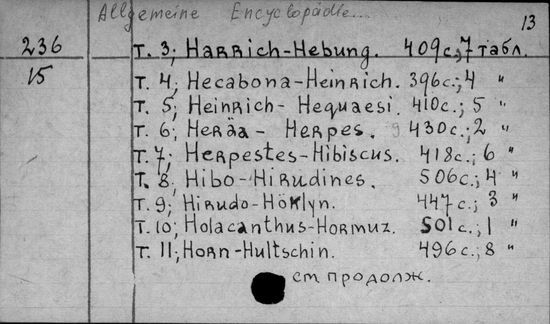 Allgemeine Encyclopädie... 13
236 Т. 3; Harrich-Hebung. 409с.; 7 табл.
15 Т. 4; Hecabona-Heinrich. 396с.; 4 "
Т. 5; Heinrich- Hequaesi. 410с.; 5 "
Т. 6; Heräa - Herpes. 430с.; 2 "
Т. 7; Herpestes-Hibiscus. 418с.; 6 "
Т. 8; Hibo-Hirudines. 506с.; 4 "
Т. 9; Hirudo-Höklyn. 447с.; 3 "
Т. 10; Holacanthus-Hormuz. 501с.; 1 "
Т. 11; Horn-Hultschin. 496с.; 8 "
см продолж.